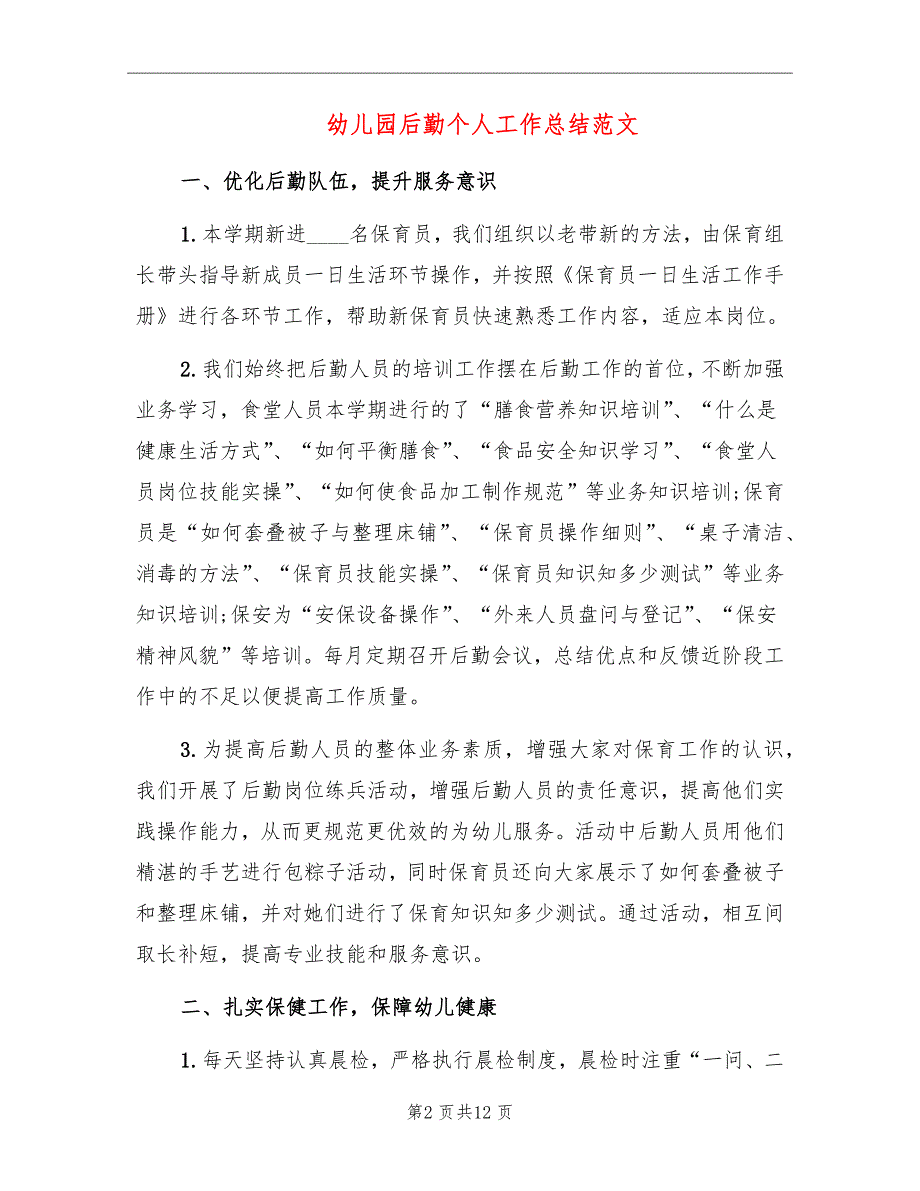 幼儿园后勤个人工作总结范文
一、优化后勤队伍，提升服务意识
1. 本学期新进____名保育员，我们组织以老带新的方法，由保育组
长带头指导新成员一日生活环节操作，并按照《保育员一日生活工作手
册》进行各环节工作，帮助新保育员快速熟悉工作内容，适应本岗位。
2. 我们始终把后勤人员的培训工作摆在后勤工作的首位，不断加强
业务学习，食堂人员本学期进行的了“膳食营养知识培训”、“什么是
健康生活方式”、“如何平衡膳食”、“食品安全知识学习”、“食堂人
员岗位技能实操”、“如何使食品加工制作规范”等业务知识培训;保育
员是“如何套叠被子与整理床铺”、“保育员操作细则”、“桌子清洁、
消毒的方法”、“保育员技能实操”、“保育员知识知多少测试”等业务
知识培训;保安为“安保设备操作”、“外来人员盘问与登记”、“保安
精神风貌”等培训。每月定期召开后勤会议，总结优点和反馈近阶段工
作中的不足以便提高工作质量。
3. 为提高后勤人员的整体业务素质，增强大家对保育工作的认识，
我们开展了后勤岗位练兵活动，增强后勤人员的责任意识，提高他们实
践操作能力，从而更规范更优效的为幼儿服务。活动中后勤人员用他们
精湛的手艺进行包粽子活动，同时保育员还向大家展示了如何套叠被子
和整理床铺，并对她们进行了保育知识知多少测试。通过活动，相互间
取长补短，提高专业技能和服务意识。
二、扎实保健工作，保障幼儿健康
1. 每天坚持认真晨检，严格执行晨检制度，晨检时注重“一问、二
第2 页共12 页